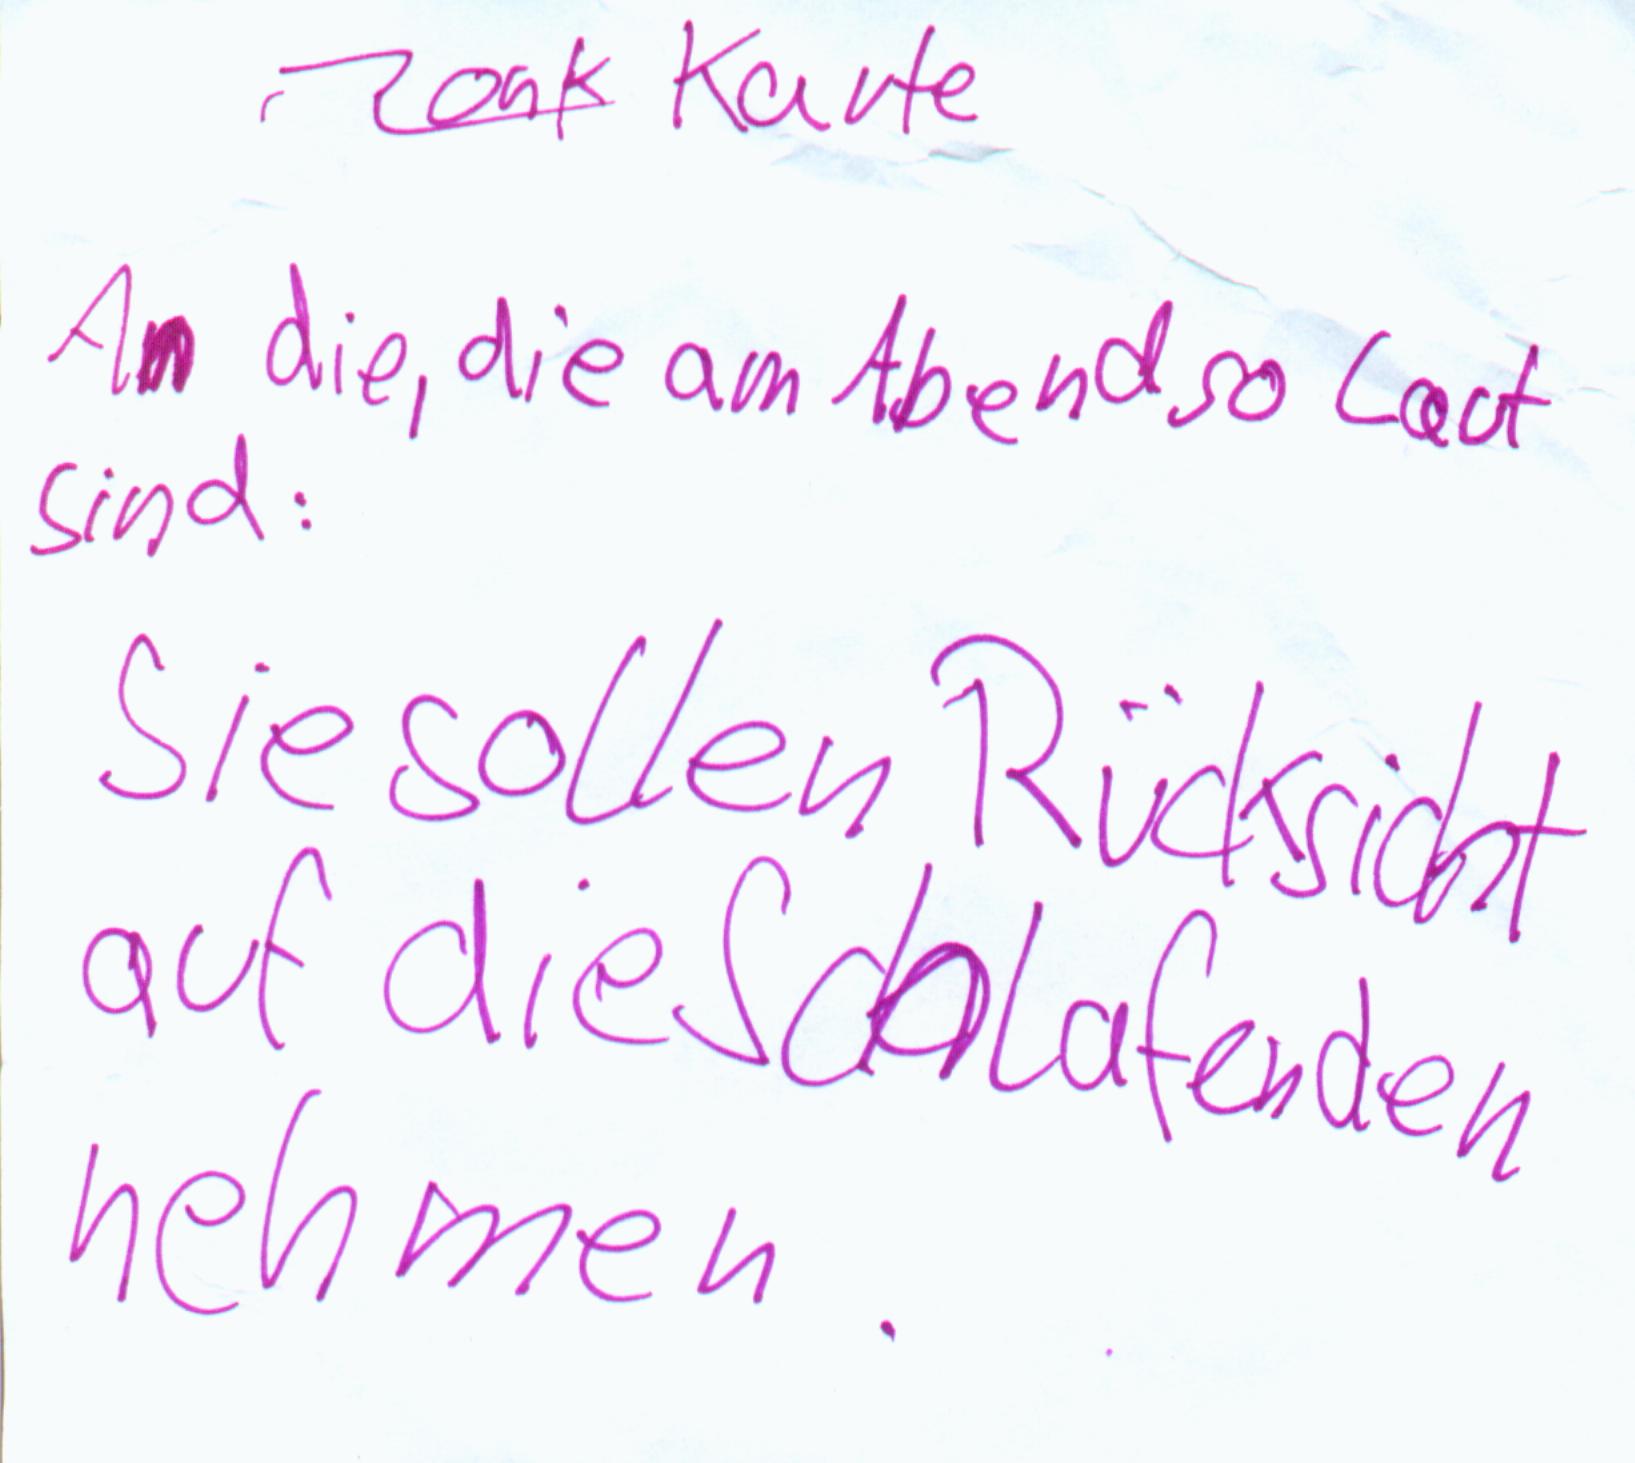 Zonk Karte
An die, die am Abend so Laut
sind:
Sie sollen Rücksicht
auf die Schlafenden
nehmen.